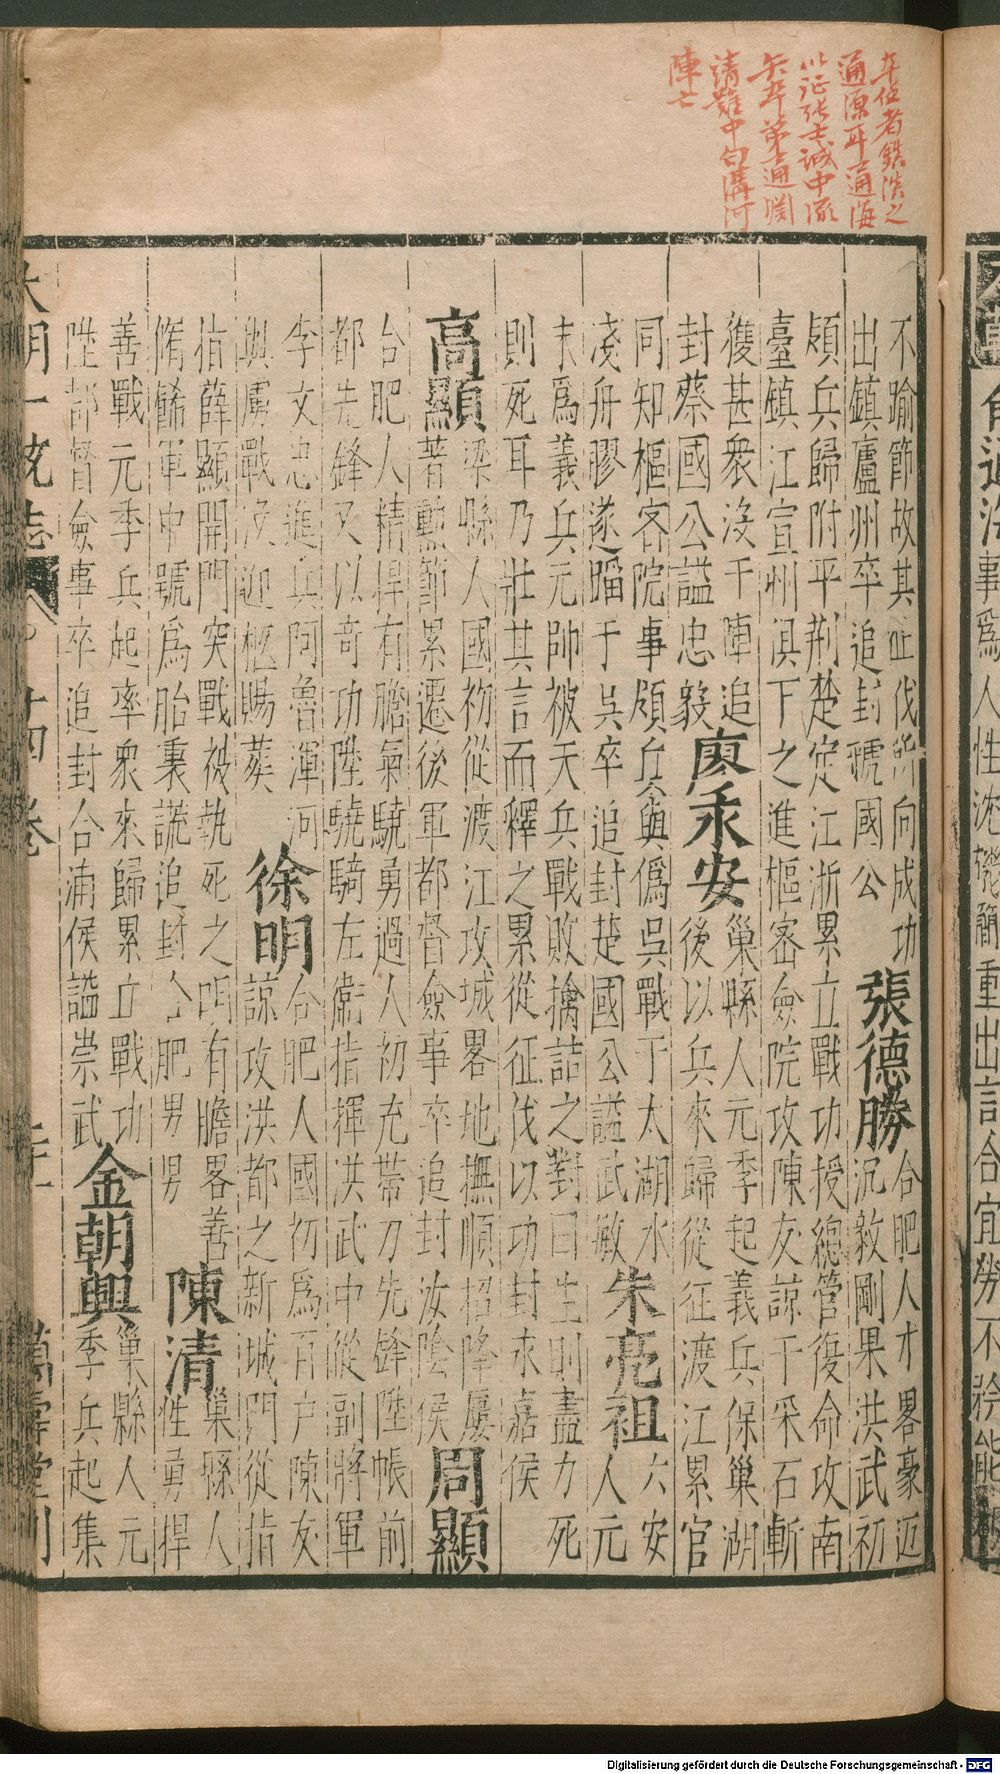 年伍者鉄淡之
通源耳通海
以征張士誠中流
矢卒第通淵
靖難中白溝河
陣亡
不踰節故其征伐所向成功
出鎮廬州卒追封虢國公
張德勝
合肥人才畧豪邁
沉毅剛果洪武初
頍兵歸附平荆楚定江浙累立戰功授總管復命攻南
臺鎮江宣州溟下之進樞密僉院攻陳友諒于采石斬
獲甚衆沒于陣追
封蔡國公謚忠毅
廖永安
巢縣人元季起義兵保巢湖
後以兵來歸從征渡江累官
同知樞密院事領兵與僞吳戰于太湖水
淺舟膠遂䧟于吳卒追封楚國公謚武敏
朱亮祖
六安
人元
末爲義兵元帥被天兵戰敗擒詰之對曰生則盡力死
則死耳乃壯其言而釋之累從征伐以功封永嘉侯
高顯
梁縣人國初從渡江攻城畧地撫順招降屢
著勳節累遷後軍都督僉事卒追封汝陰侯
周顯
合肥人精悍有膽氣驍勇過人初充帶刀先鋒陞帳前
都先鋒又以奇功陞驍騎左衛指揮洪武中從副將軍
李文忠進兵阿魯渾河
與虜戰沒迎柩賜葬
徐明
合肥人國初爲百户陳友
諒攻洪都之新城門從指
指薛顯開門突戰被執死之
脩餙軍中號爲胎裏謊追封合肥男
有膽畧善
陳清
巢縣人
性勇悍
善戰元季兵起率衆來歸累立戰功
陞都督僉事卒追封合浦侯謚崇武
金朝興
巢縣人元
季兵起集
大明一統志
十四卷
萬壽堂刊
事爲人性沈
簡重出言合宜勞不矜能
Digitalisierung gefördert durch die Deutsche Forschungsgemeinschaft - DFG